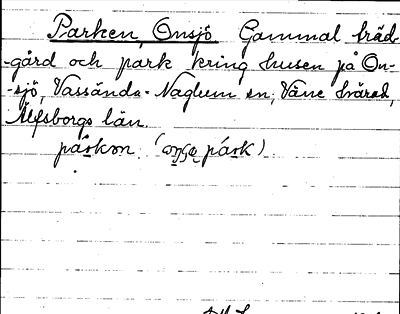 Parken, Onsjö Gammal träd-
-gård och park kring husen på On-
-sjö, Vassända-Naglum sn, Väne härad,
Älfsborgs län.
párkɔn (ɔnʃǫ párk)